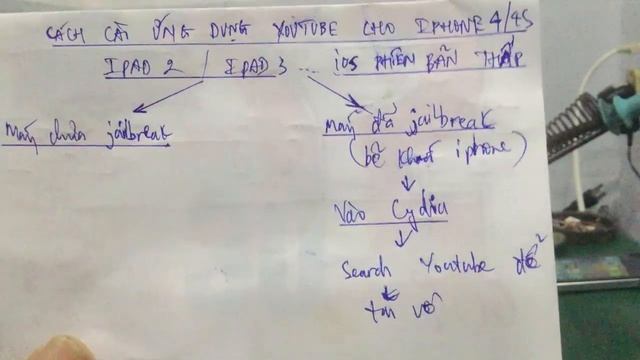 CÁCH CÀI ỨNG DỤNG YOUTUBE CHO IPHONE 4/4S
IPAD 2 / IPAD 3 ... iOS PHIÊN BẢN THẤP
Máy chưa jailbreak
Máy đã jailbreak
(bẻ khoá iphone)
Vào Cydia
Search Youtube để
tải về